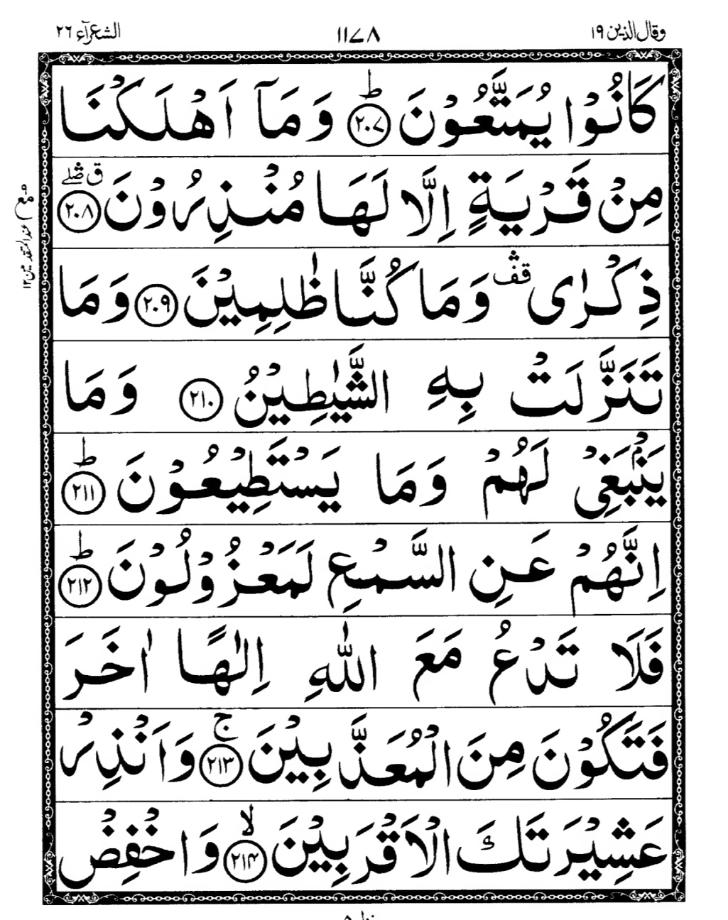 وقال الذین ١٩ ١١٧٨ الشعرآء ٢٦
كَانُوْا يُمَتَّعُوْنَ ؕ ﴿۲۰۷﴾ وَمَاۤ اَهْلَكْنَا
مِنْ قَرْيَةٍ اِلَّا لَهَا مُنْذِرُوْنَ ﴿۲۰۸﴾ ق ۖۛ
ذِكْرٰى ۛ قف وَمَا كُنَّا ظٰلِمِيْنَ ﴿۲۰۹﴾ وَمَا
تَنَزَّلَتْ بِهِ الشَّيٰطِيْنُ ﴿۲۱۰﴾ وَمَا
يَنْۢبَغِىْ لَهُمْ وَمَا يَسْتَطِيْعُوْنَ ؕ ﴿۲۱۱﴾
اِنَّهُمْ عَنِ السَّمْعِ لَمَعْزُوْلُوْنَ ؕ ﴿۲۱۲﴾
فَلَا تَدْعُ مَعَ اللّٰهِ اِلٰهًا اٰخَرَ
فَتَكُوْنَ مِنَ الْمُعَذَّبِيْنَ ۚ ﴿۲۱۳﴾ وَاَنْذِرْ
عَشِيْرَتَكَ الْاَقْرَبِيْنَ ۙ ﴿۲۱۴﴾ وَاخْفِضْ